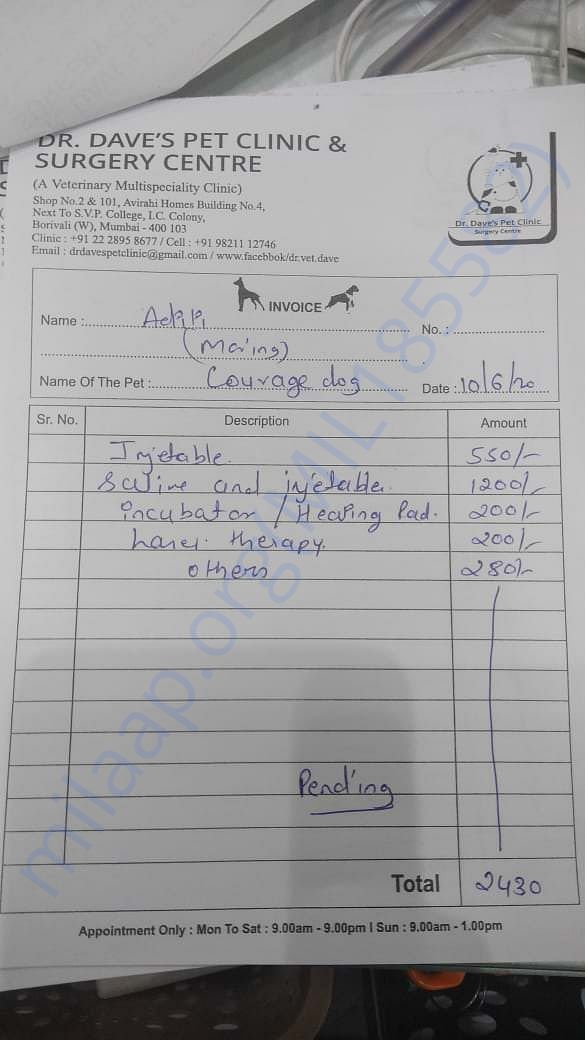 DR. DAVE'S PET CLINIC &
SURGERY CENTRE
(A Veterinary Multispeciality Clinic)
Shop No.2 & 101, Avirahi Homes Building No.4,
Next To S.V.P. College, I.C. Colony,
Borivali (W), Mumbai - 400 103
Clinic : +91 22 2895 8677 / Cell : +91 98211 12746
Email : drdavespetclinic@gmail.com / www.facebbok/dr.vet.dave
Dr. Dave's Pet Clinic
Surgery Centre
INVOICE
Name : No. :
(Moring)
Name Of The Pet : Courage dog Date : 10/6/20
Sr. No. Description Amount
Injetable. 550/-
Saline and injetable. 1200/-
incubator / Heating Pad. 200/-
Laser. therapy. 200/-
others 280/-
Pending
Total 2430
Appointment Only : Mon To Sat : 9.00am - 9.00pm I Sun : 9.00am - 1.00pm